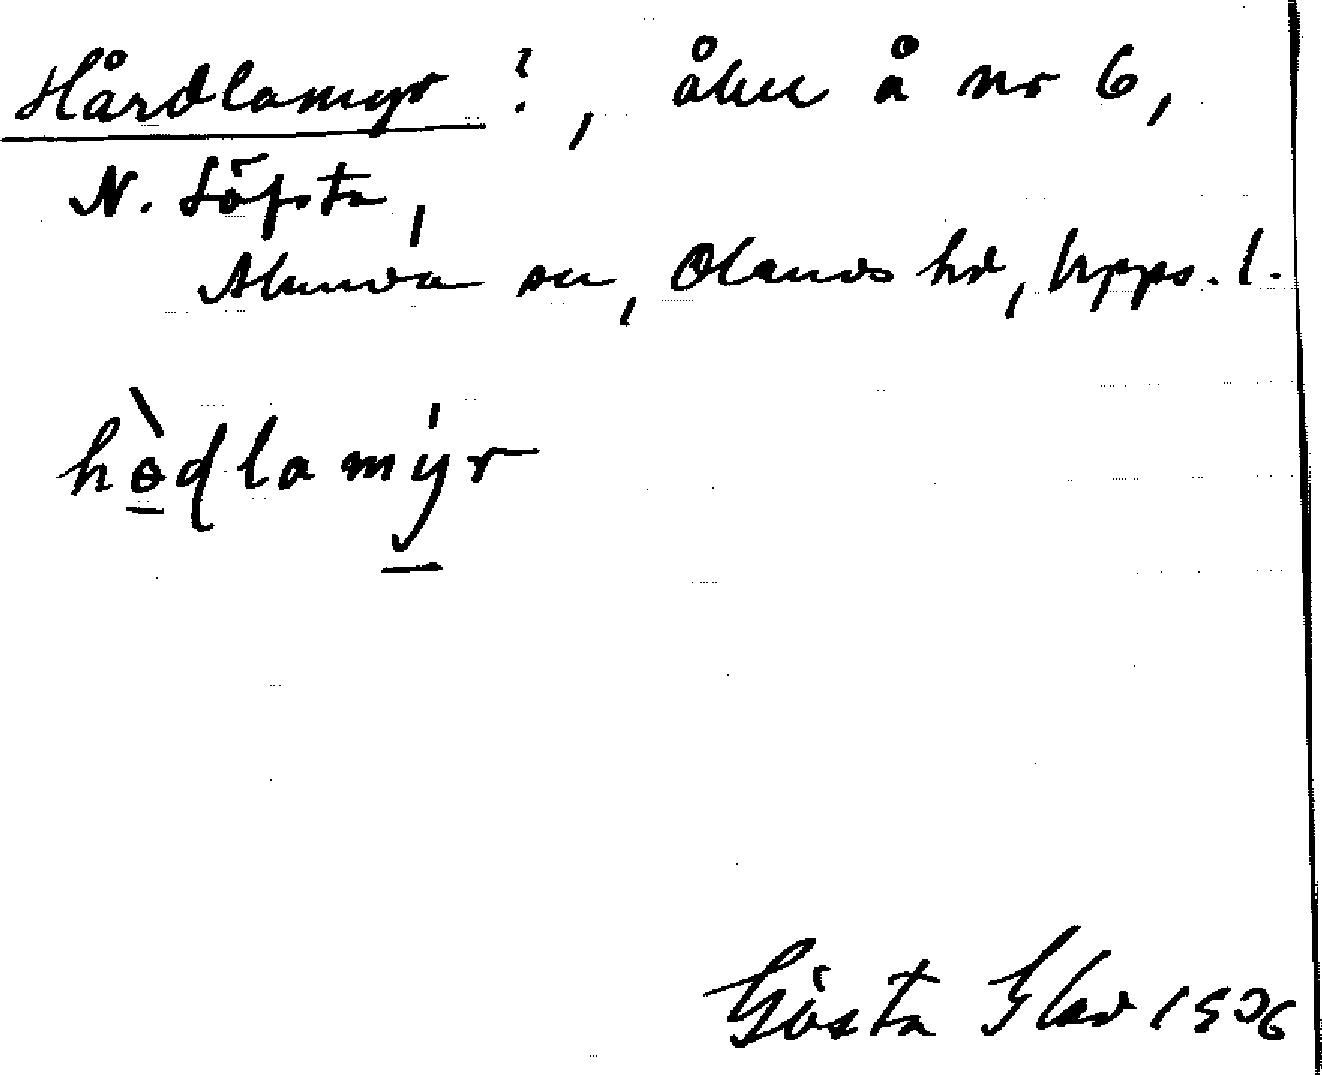 Hårdlamyr ?, åker å nr 6,
N. Löfsta,
Alunda sn, Olands hd, Upps. l.
hòdlamýr
Gösta 1936